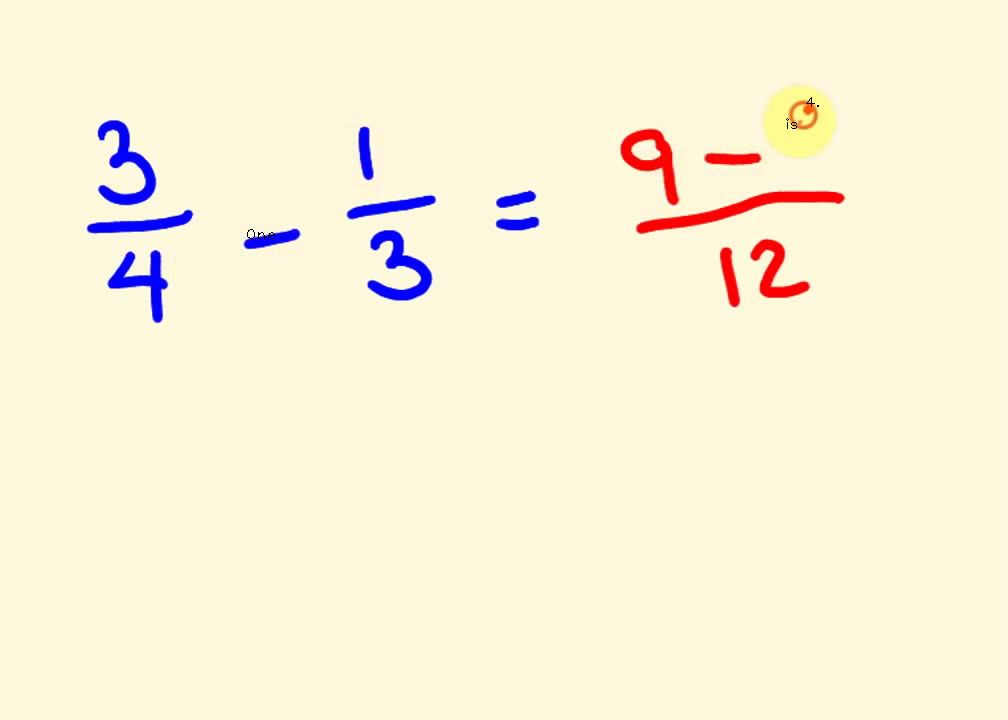 3/4 - 1/3 = 9 - /12
One
is
4.